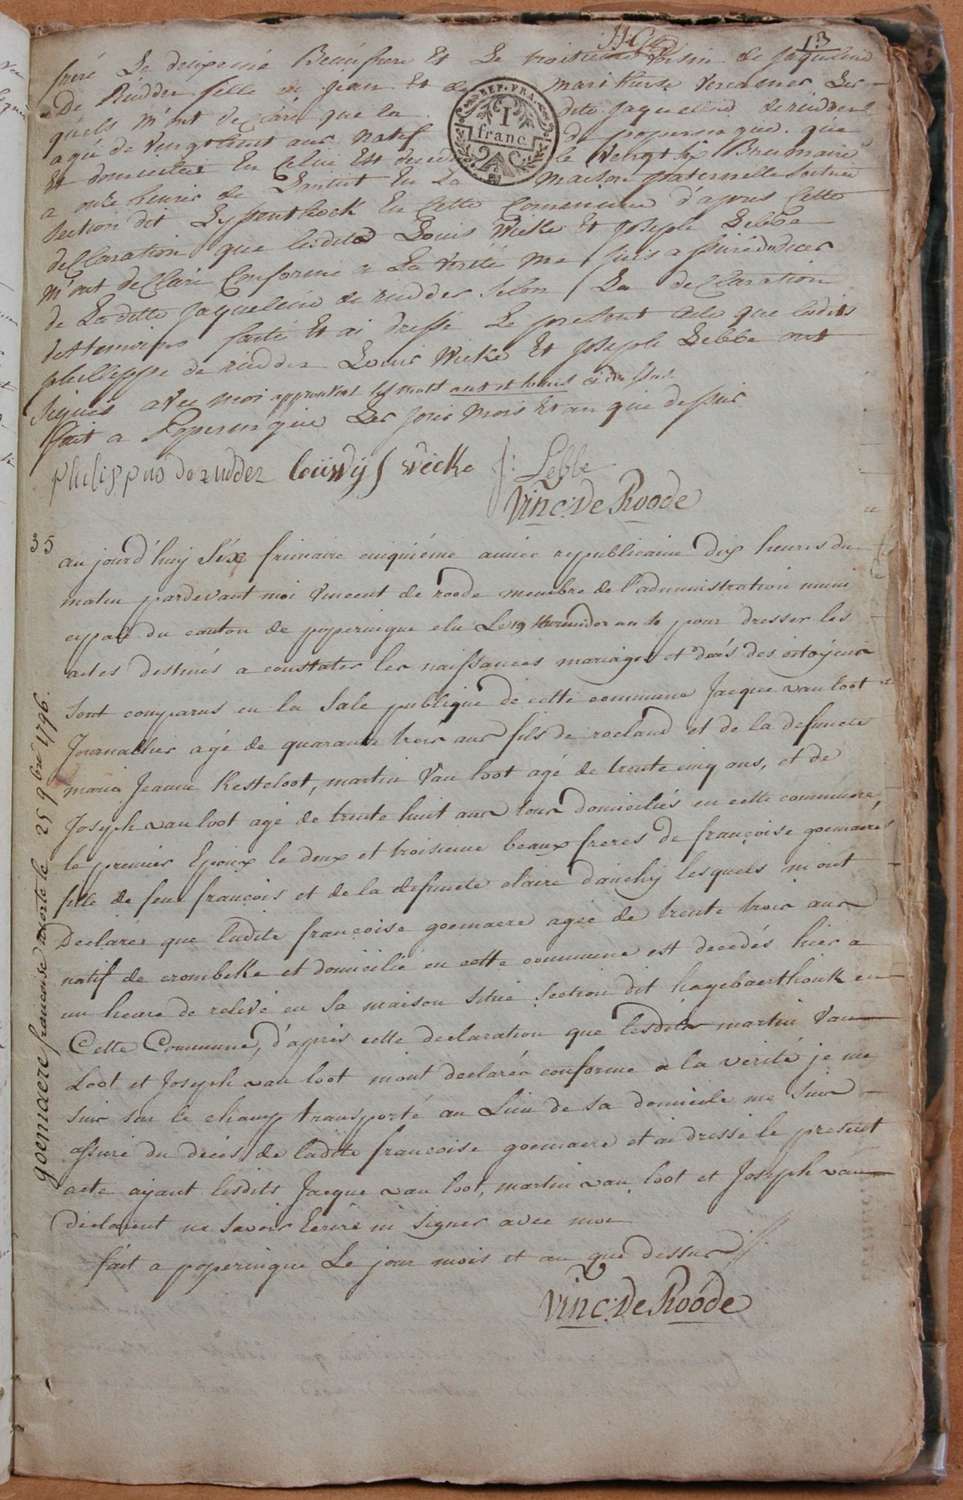 13
frere Le deuxieme Beaufrere Et Le troisieme voisin de Jaqueline
De Rudder fille de Jean Et de
quels m'ont declaré que la dite Jaqueline de rudder
agée de vingthuit ans natif de poperingue
Et domicilié En Celui Est decedé le vingt six Brumaire
a onze heures de En La maison paternelle
section dit Leysenthoek En cette Commune d'apres cette
declaration que lesdits Louis Wicke Et Joseph Lebbe
m'ont declaré Conforme a La verité me suis assuré du deces
de Laditte Jaqueline de rudder selon La declaration
des temoins faite Et ai dressé Le present acte que ledits
philippe de rudder Louis Wicke Et Joseph Lebbe ont
signés avec moi approuvant les mots
fait a Poperingue Les jour mois Et an que dessus
REP. FRA.
1
franc.
philippus de rudder louwys wicke J: Lebbe
Vinc: De Roode
35
aujourd'huy Six frimaire cinquiéme année republicaine dix heures du
matin pardevant moi Vincent de roode membre de l'administration muni
cipale du canton de poperingue elu Le 19 thermidor an 4 pour dresser les
actes destinés a constater les naissances mariages et decés des citoyens
sont comparus en la Sale publique de cette commune Jacque van loot
Journallier agé de quarante trois ans fils de roeland et de la defuncte
maria Jeanne Kesteloot, martin Van loot agé de trente cinq ans, et de
Joseph van loot agé de trente huit ans tous domiciliés en cette commune,
le premier Epoux le deux et troisieme beaux freres de françoise goemaere
fille de feu françois et de la defuncte claire danchy lesquels m'ont
Declarés que ladite françoise goemaere agée de trente trois ans
natif de crombekke et domicilié en cette commune est decedés hier a
un heure de relevé en sa maison situé section dit hagebaerthouk en
Cette Commune, d'après cette declaration que lesdits martin Van
Loot et Joseph van loot m'ont declarés conforme a la verité je me
suis sur le champ transporté au Lieu de sa domicile me suis
assuré du décés de ladite françoise goemaere et ai dressé le present
acte ayant lesdits Jacque van loot, martin van loot et Joseph van
declarent ne savoir Ecrire ni signer avec moi
fait a poperingue Le jour mois et an que dessus
Vinc: De Roode
goemaere françoise morte le 25 9bre 1796.